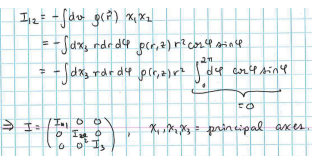 I₁₂ = -∫dv ρ(r⃗) x₁x₂
= -∫dx₃ rdrdφ ρ(r,z) r² cosφ sinφ
= -∫dx₃ rdrdφ ρ(r,z) r² ∫₀²ᵖ dφ cosφ sinφ
=0
⇒ I = (I₁₁ 0 0
0 I₂₂ 0
0 0 I₃), x₁,x₂,x₃ = principal axes.